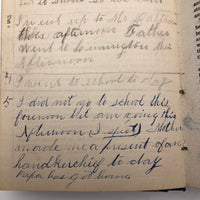 I went up to Mr
this afternoon Father
went to Lemington this
Afternoon
4 I went to school to day
5 I did not go to school this
forenoon but am going this
Afternoon (I expect) Mother
made me a present of an
handkerchief to day
Papa has got home